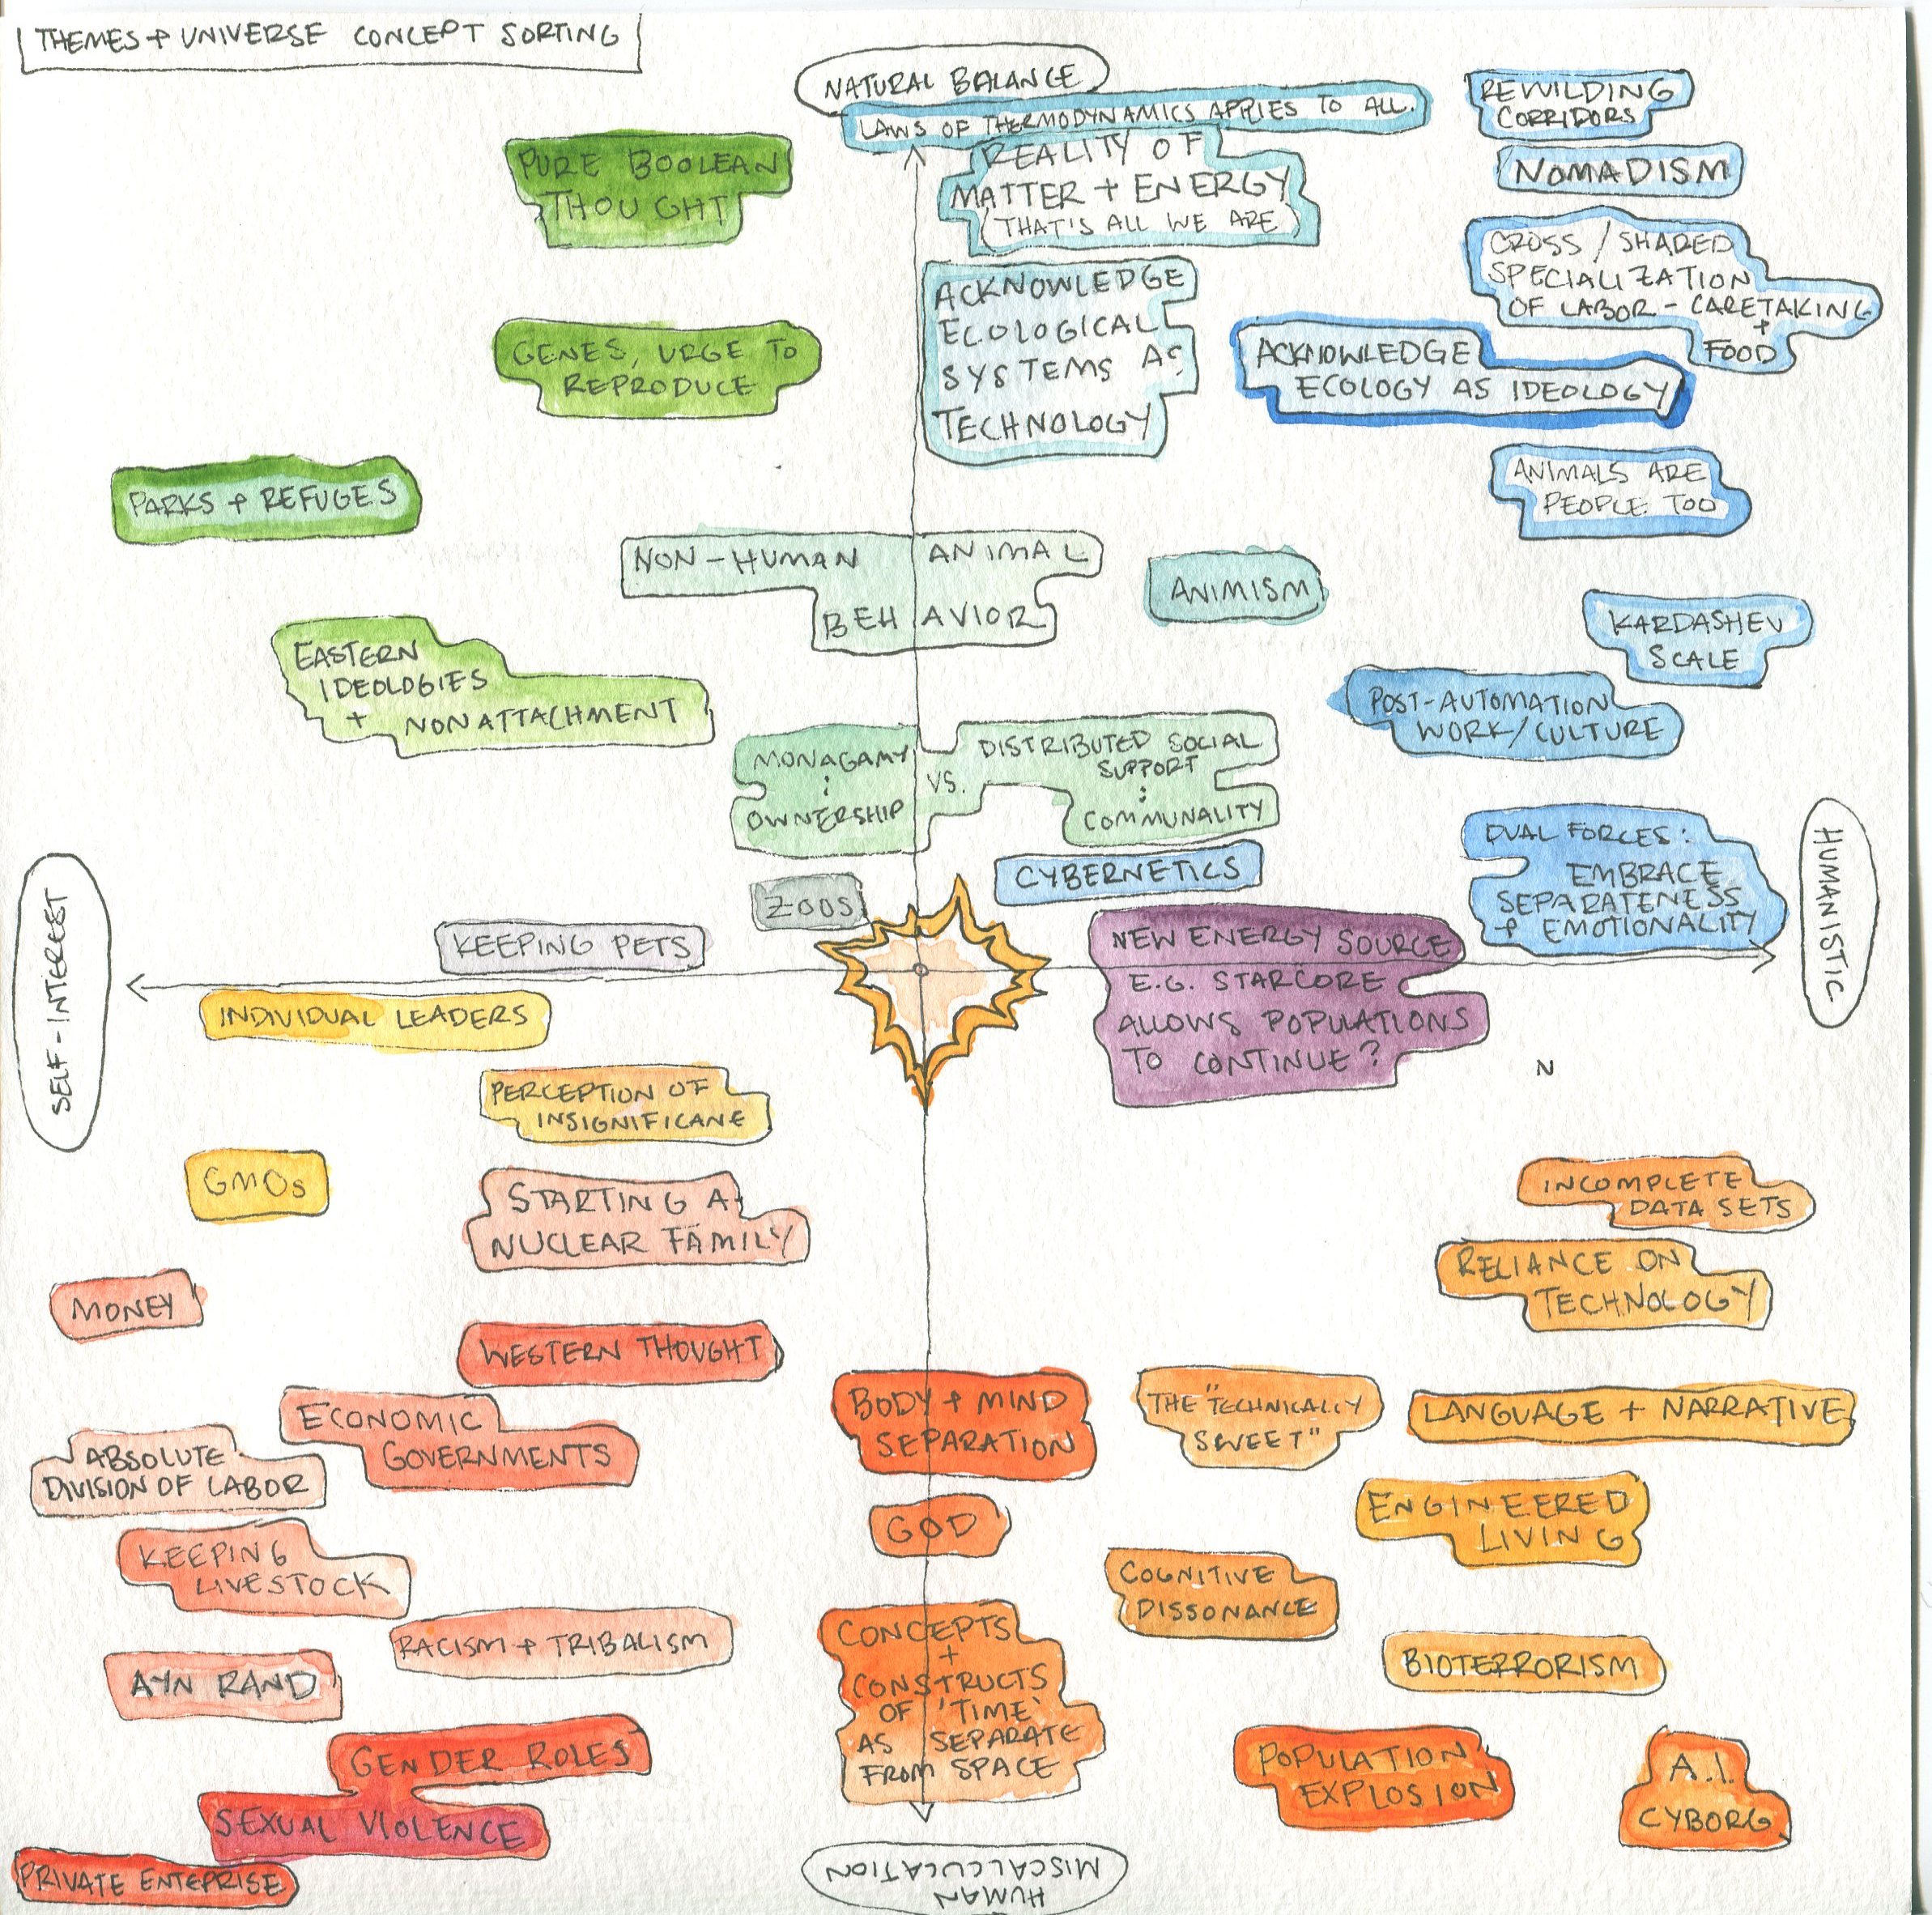 THEMES + UNIVERSE CONCEPT SORTING
NATURAL BALANCE
LAWS OF THERMODYNAMICS APPLIES TO ALL.
REALITY OF
MATTER + ENERGY
(THAT'S ALL WE ARE)
REWILDING
CORRIDORS
NOMADISM
PURE BOOLEAN
THOUGHT
CROSS / SHARED
SPECIALIZATION
OF LABOR - CARETAKING
+
FOOD
ACKNOWLEDGE
ECOLOGICAL
SYSTEMS AS
TECHNOLOGY
GENES, URGE TO
REPRODUCE
ACKNOWLEDGE
ECOLOGY AS IDEOLOGY
PARKS + REFUGES
ANIMALS ARE
PEOPLE TOO
NON-HUMAN ANIMAL
BEHAVIOR
ANIMISM
KARDASHEV
SCALE
EASTERN
IDEOLOGIES
+ NONATTACHMENT
POST-AUTOMATION
WORK/CULTURE
MONAGAMY
:
OWNERSHIP
VS.
DISTRIBUTED SOCIAL
SUPPORT
:
COMMUNALITY
DUAL FORCES:
EMBRACE
SEPARATENESS
+ EMOTIONALITY
CYBERNETICS
ZOOS
KEEPING PETS
SELF-INTEREST
HUMANISTIC
NEW ENERGY SOURCE
E.G. STARCORE
ALLOWS POPULATIONS
TO CONTINUE?
N
INDIVIDUAL LEADERS
PERCEPTION OF
INSIGNIFICANE
GMOs
STARTING A
NUCLEAR FAMILY
INCOMPLETE
DATA SETS
RELIANCE ON
TECHNOLOGY
MONEY
WESTERN THOUGHT
ECONOMIC
GOVERNMENTS
BODY + MIND
SEPARATION
THE "TECHNICALLY
SWEET"
LANGUAGE + NARRATIVE
ABSOLUTE
DIVISION OF LABOR
GOD
ENGINEERED
LIVING
KEEPING
LIVESTOCK
COGNITIVE
DISSONANCE
RACISM + TRIBALISM
CONCEPTS
+
CONSTRUCTS
OF 'TIME'
AS SEPARATE
FROM SPACE
BIOTERRORISM
AYN RAND
GENDER ROLES
SEXUAL VIOLENCE
POPULATION
EXPLOSION
A.I.
CYBORG
PRIVATE ENTEPRISE
HUMAN
MISCALCULATION